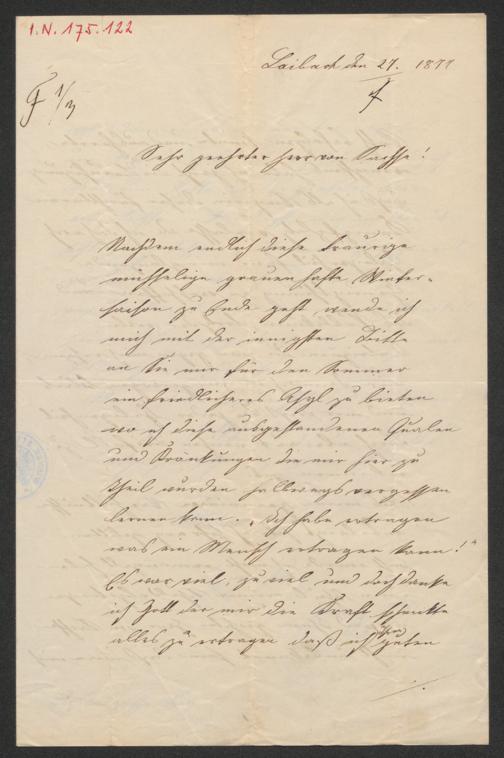 I.N. 175.122
Laibach den 27. 1877
F 1/3
Sehr geehrter Herr von Sachse!
Nachdem endlich diese traurige
mühselige grauenhafte Winter-
saison zu Ende geht wende ich
mich mit der innigsten Bitte
an Sie mir für den Sommer
ein friedlicheres Asyl zu bieten
wo ich diese ausgestandenen Qualen
und Kränkungen die mir hier zu
Theil wurden halbwegs vergessen
lernen kann. „Ich habe ertragen
was ein Mensch ertragen kann!"
Es war viel, zu viel und doch danke
ich Gott der mir die Kraft schenkte
alles zu ertragen daß ich guten